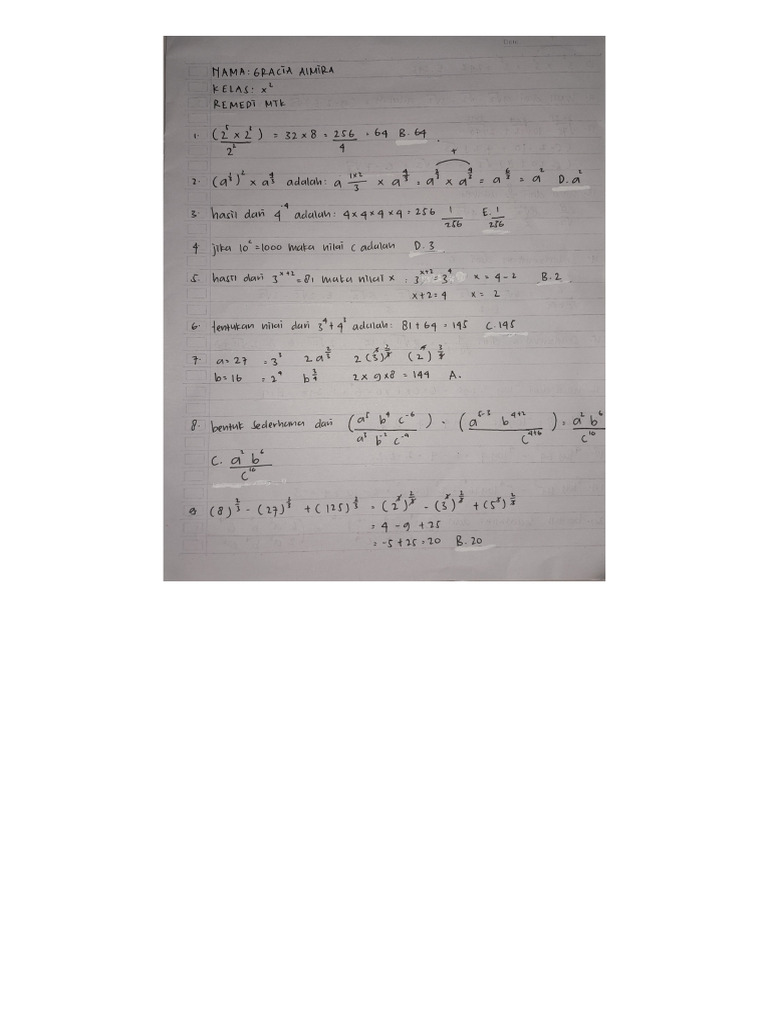 Date
NAMA: GRACIA AIMIRA
KELAS: X²
REMEDI MTK
1. (2⁵ × 2³ / 2²) = 32 × 8 = 256/4 = 64 B. 64
+
2. (a^(1/3))² × a^(4/3) adalah: a^(1×2/3) × a^(4/3) = a^(2/3) × a^(4/3) = a^(6/3) = a² D. a²
3. hasil dari 4⁻⁴ adalah: 4 × 4 × 4 × 4 = 256 1/256 E. 1/256
4. jika 10^c = 1000 maka nilai c adalah D. 3
5. hasil dari 3^(x+2) = 81 maka nilai x : 3^(x+2) = 3⁴ x = 4 - 2 B. 2
x + 2 = 4 x = 2
6. tentukan nilai dari 3⁴ + 4³ adalah: 81 + 64 = 145 C. 145
7. a = 27 = 3³ 2a^(2/3) 2(3³)^(2/3) (2⁴)^(3/4)
b = 16 = 2⁴ b^(3/4) 2 × 9 × 8 = 144 A.
8. bentuk sederhana dari (a⁵ b⁴ c⁻⁶ / a³ b⁻² c⁻⁴) = (a^(5-3) b^(4+2) / c^(4+6)) = a² b⁶ / c¹⁰
C. a² b⁶ / c¹⁰
9. (8)^(2/3) - (27)^(2/3) + (125)^(2/3) = (2³)^(2/3) - (3³)^(2/3) + (5³)^(2/3)
= 4 - 9 + 25
= -5 + 25 = 20 B. 20